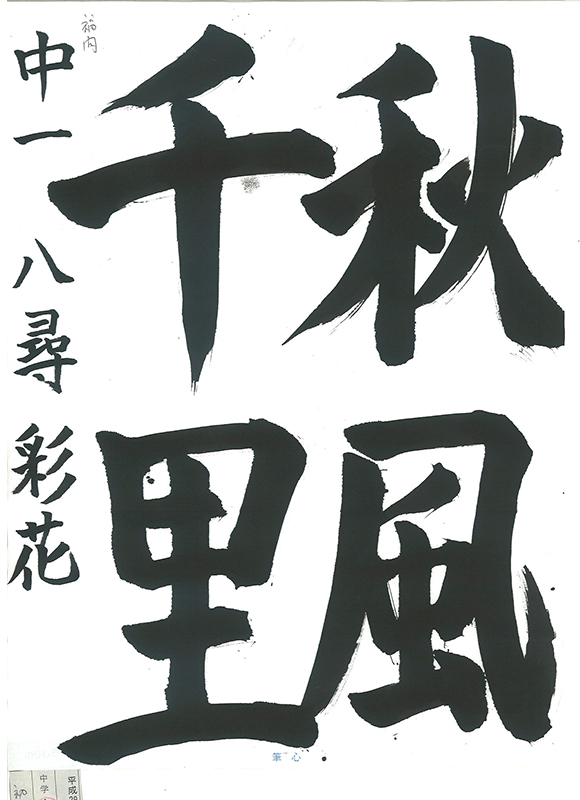 秋風
千里
中一 八尋 彩花
筆心
平成28
中学
初